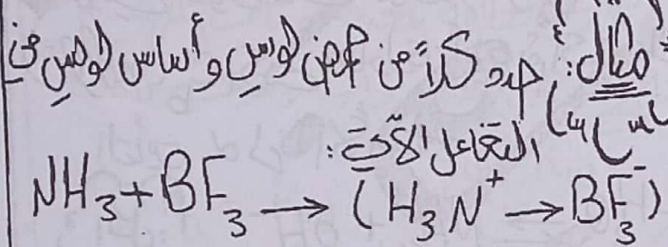 مثال: حدد كلاً من حمض لويس وأساس لويس في
التفاعل الآتي:
NH₃ + BF₃ → (H₃N⁺ → BF₃⁻)